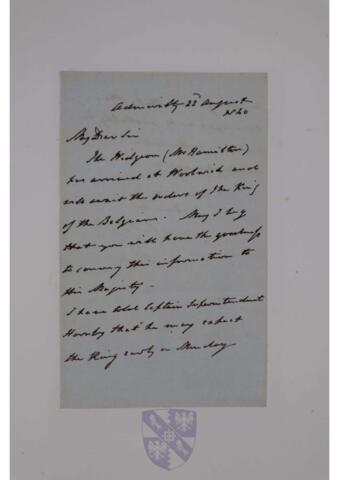 Admiralty 22nd August
1840
My Dear Sir
The Widgeon (Mr Hamilton)
has arrived at Woolwich and
will await the orders of The King
of the Belgians. May I beg
that you will have the goodness
to convey this information to
His Majesty -
I have told Captain Superintendent
Hornby that he may expect
the King early on Monday